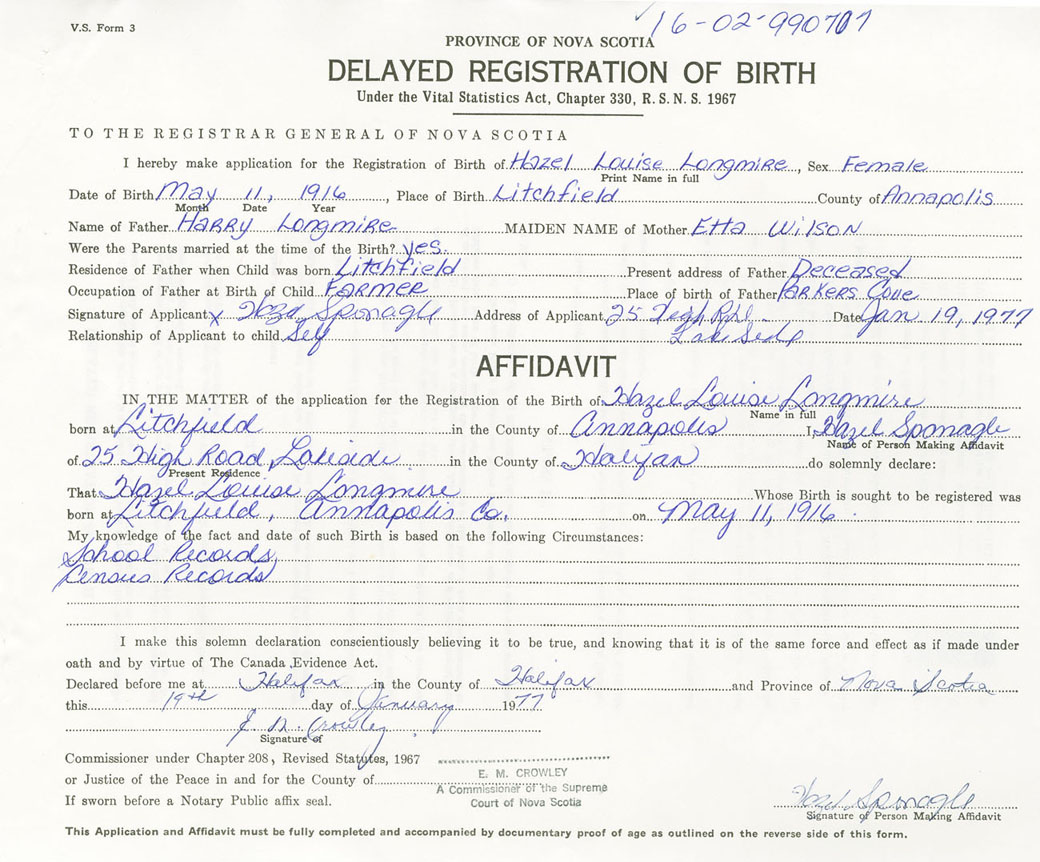 V.S. Form 3
16-02-990707
PROVINCE OF NOVA SCOTIA
DELAYED REGISTRATION OF BIRTH
Under the Vital Statistics Act, Chapter 330, R. S. N. S. 1967
TO THE REGISTRAR GENERAL OF NOVA SCOTIA
I hereby make application for the Registration of Birth of Hazel Louise Longmire, Sex Female
Print Name in full
Date of Birth May 11, 1916, Place of Birth Litchfield County of Annapolis
Month Date Year
Name of Father Harry Longmire MAIDEN NAME of Mother Etta Wilson
Were the Parents married at the time of the Birth? yes.
Residence of Father when Child was born Litchfield Present address of Father Deceased
Occupation of Father at Birth of Child Farmer Place of birth of Father Parkers Cove
Signature of Applicant x Hazel Sponagle Address of Applicant 25 High Rd. Date Jan 19, 1977
Relationship of Applicant to child Self Lakeside
AFFIDAVIT
IN THE MATTER of the application for the Registration of the Birth of Hazel Louise Longmire
Name in full
born at Litchfield in the County of Annapolis I, Hazel Sponagle
Name of Person Making Affidavit
of 25 High Road, Lakeside in the County of Halifax do solemnly declare:
Present Residence
That Hazel Louise Longmire Whose Birth is sought to be registered was
born at Litchfield, Annapolis Co. on May 11, 1916.
My knowledge of the fact and date of such Birth is based on the following Circumstances:
School Records
Census Records
I make this solemn declaration conscientiously believing it to be true, and knowing that it is of the same force and effect as if made under
oath and by virtue of The Canada Evidence Act.
Declared before me at Halifax in the County of Halifax and Province of Nova Scotia
this 19th day of January 1977
E. M. Crowley
Signature of
Commissioner under Chapter 208, Revised Statutes, 1967
or Justice of the Peace in and for the County of
If sworn before a Notary Public affix seal.
E. M. CROWLEY
A Commissioner of the Supreme
Court of Nova Scotia
Hazel Sponagle
Signature of Person Making Affidavit
This Application and Affidavit must be fully completed and accompanied by documentary proof of age as outlined on the reverse side of this form.